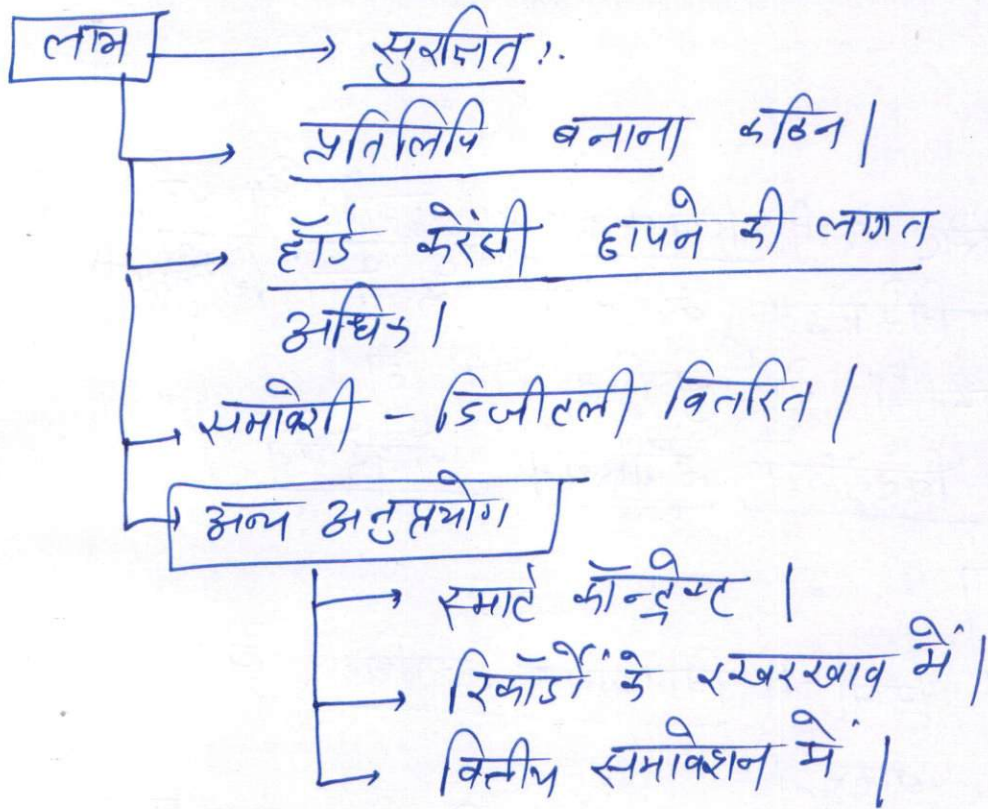 लाभ → सुरक्षित।
→ प्रतिलिपि बनाना कठिन।
→ हॉर्ड करेंसी छापने की लागत
अधिक।
→ समावेशी - डिजीटली वितरित।
→ अन्य अनुप्रयोग
→ स्मार्ट कॉन्ट्रेक्ट।
→ रिकॉर्डों के रखरखाव में।
→ वित्तीय समावेशन में।